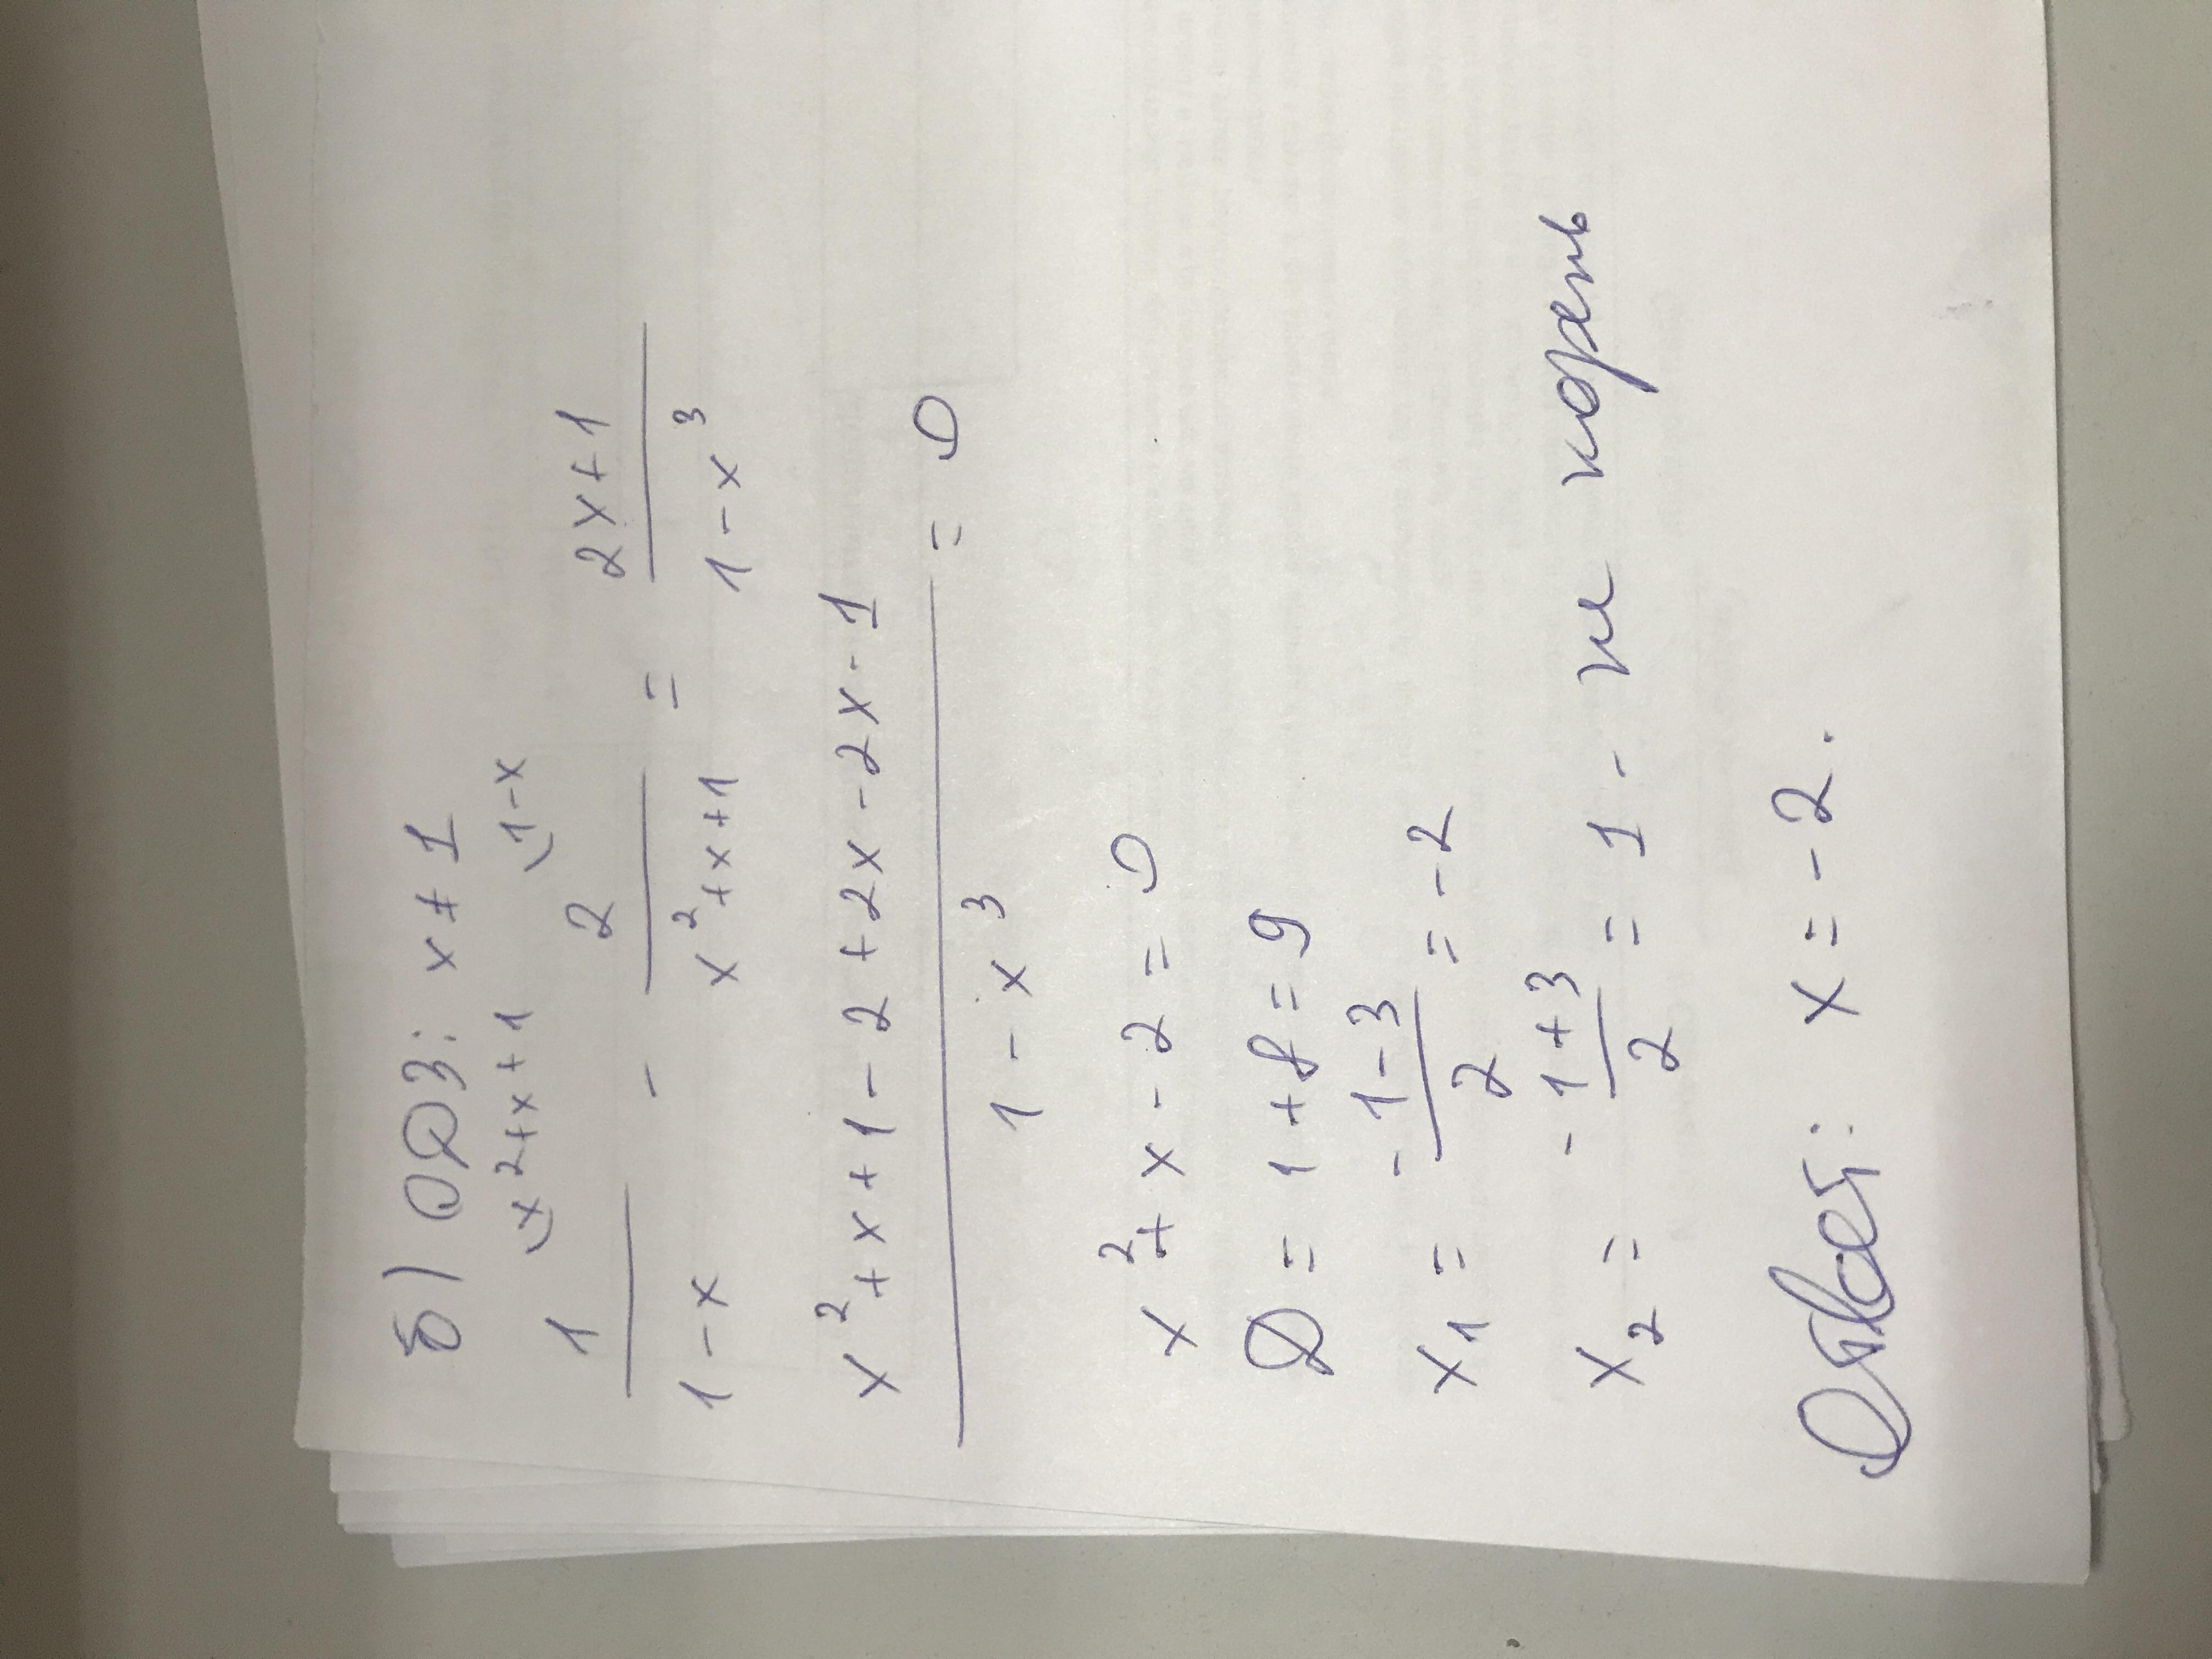 б) ОДЗ: x ≠ 1
x²+x+1 1-x
1/(1-x) - 2/(x²+x+1) = (2x+1)/(1-x³)
(x²+x+1-2+2x-2x-1)/(1-x³) = 0
x²+x-2=0
D = 1+8=9
x₁ = (-1-3)/2 = -2
x₂ = (-1+3)/2 = 1 - не корень
Ответ: x=-2.